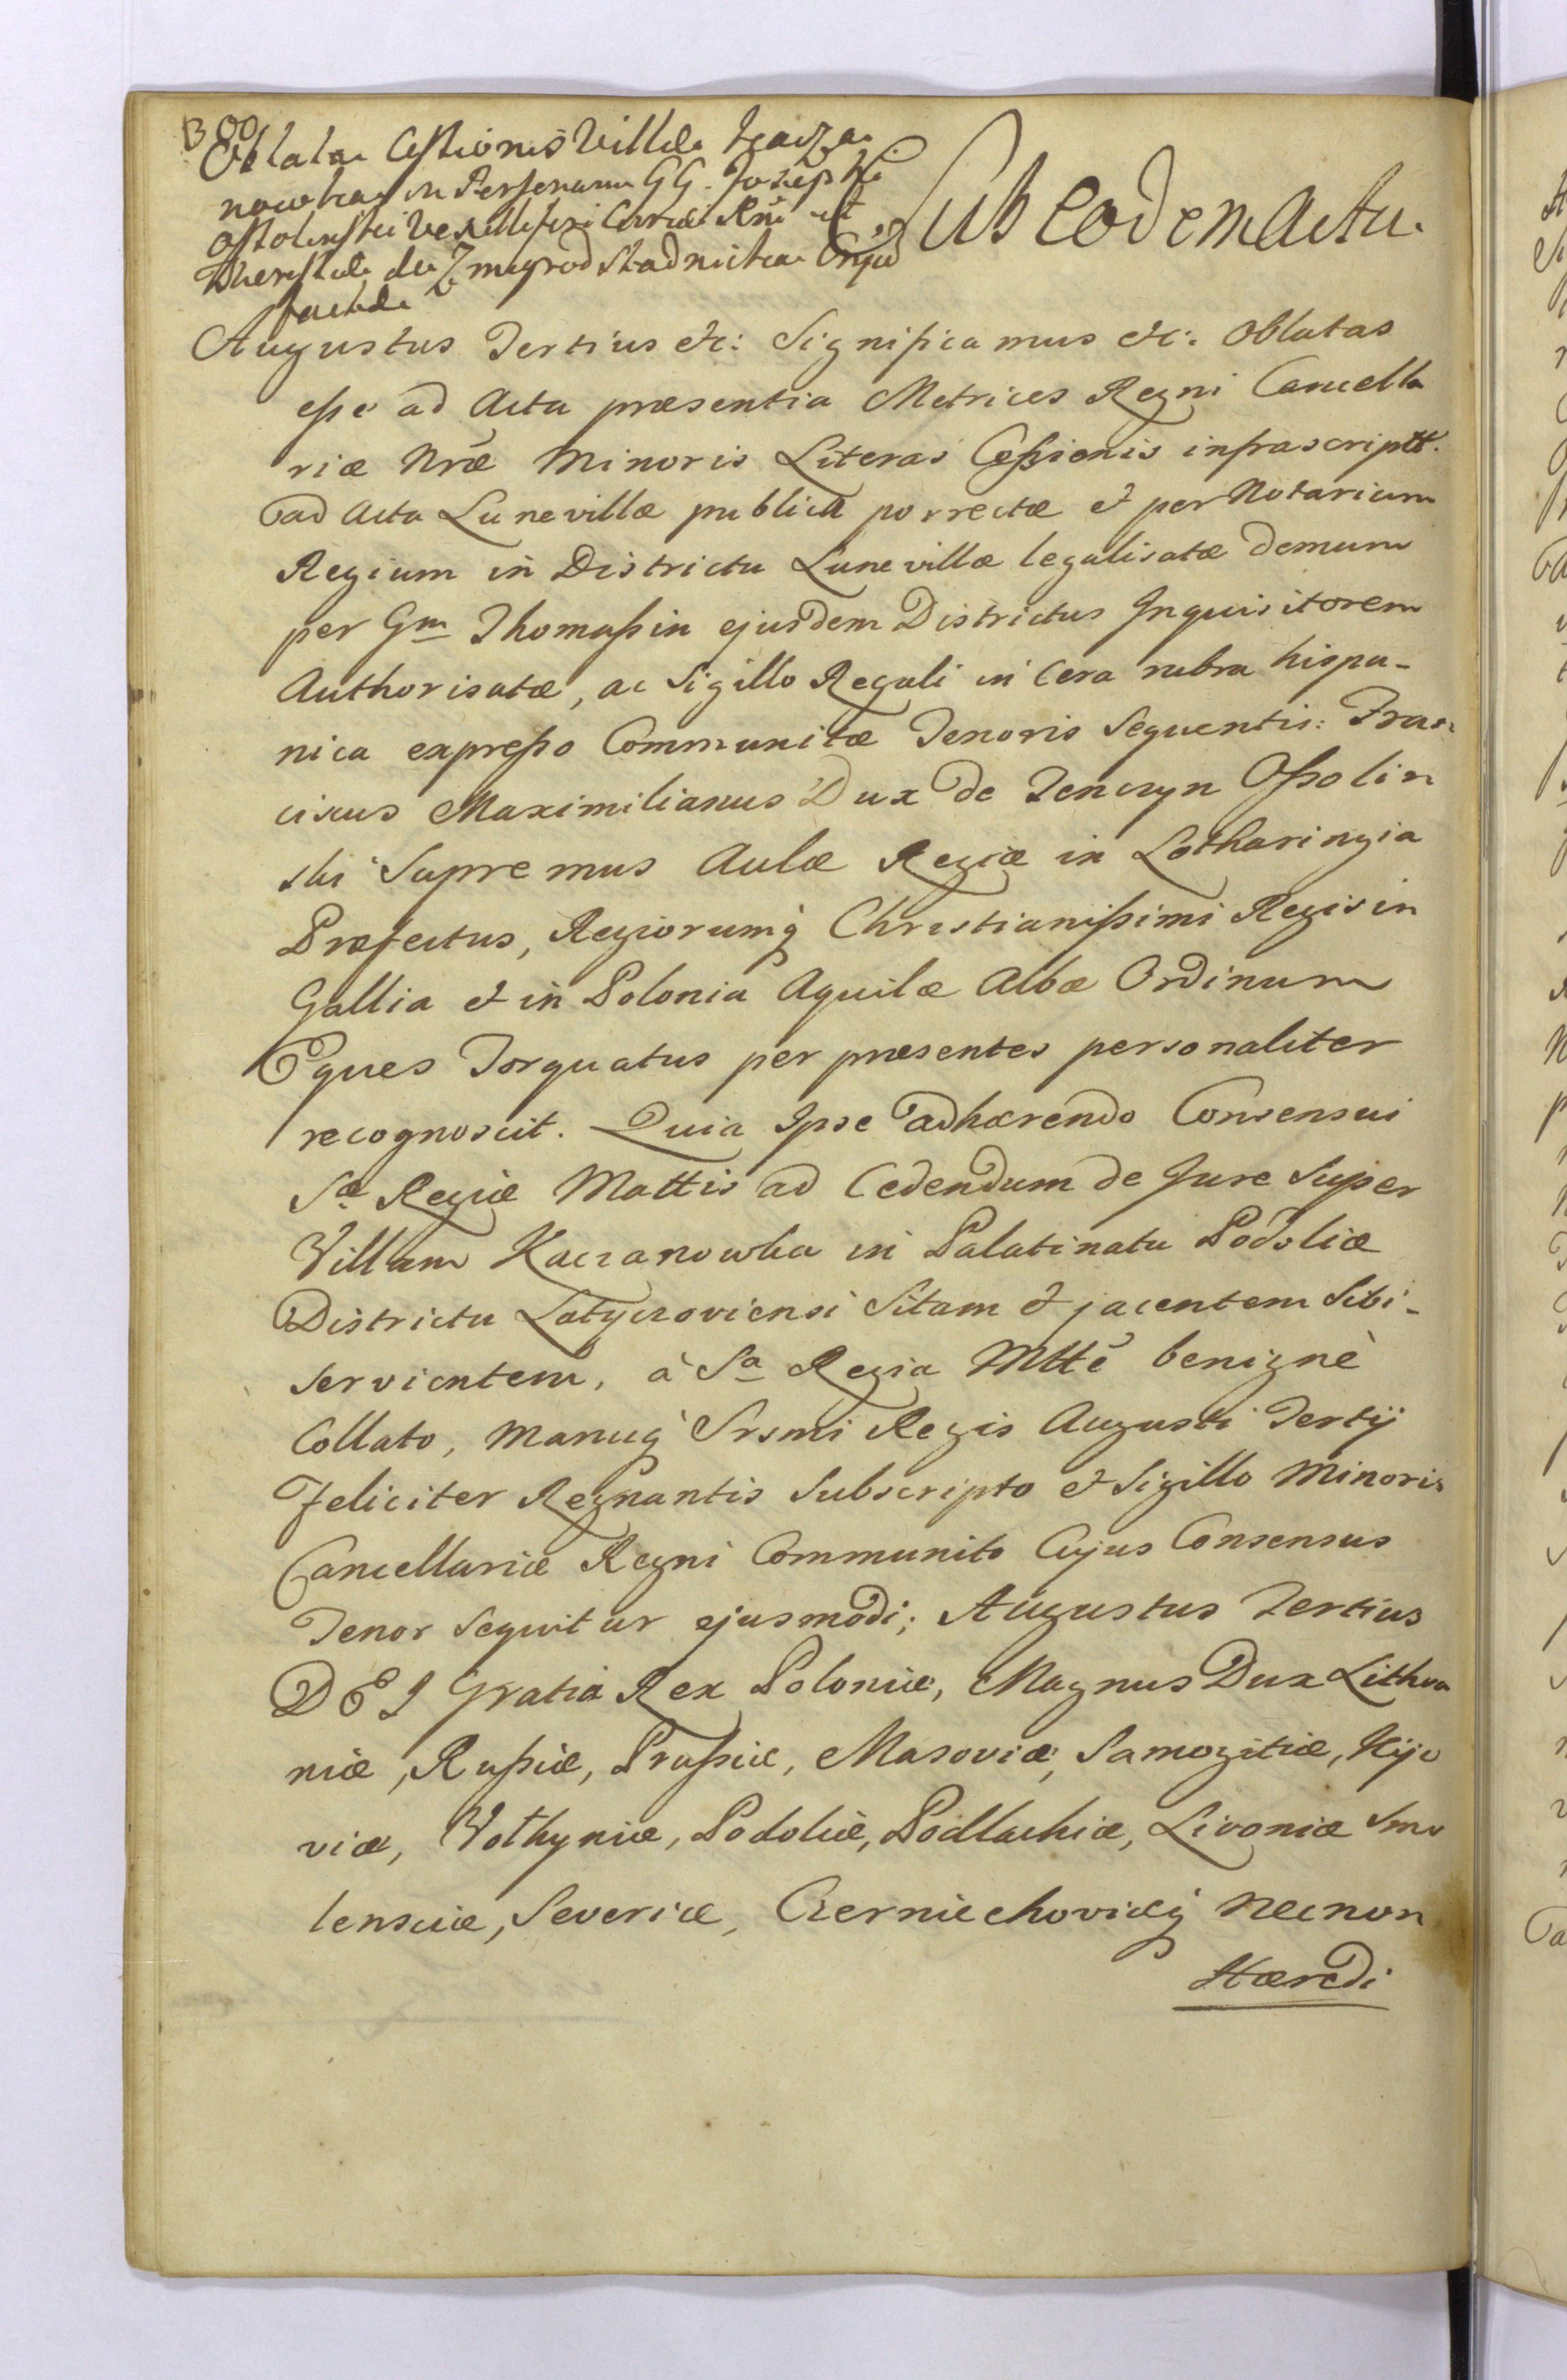 300
Oblata Cessionis Villæ Kacza-
nowka in Personam GG. Josephi
Ossolinski Vexilliferi Curiæ Rni et
Theresiæ de Zmigrod Stadnicka Conjug
factæ
Sub eodem Actu.
Augustus Tertius etc: Significamus etc: Oblatas
esse ad Acta præsentia Metrices Regni Cancella
riæ Nræ Minoris Literas Cessionis infrascriptt.
ad Acta Lunevillæ publica porrectæ et per Notarium
Regium in Districtu Lunevillæ legalisatæ demum
per Gm Thomassin ejusdem Districtus Inquisitorem
Authorisatæ, ac Sigillo Regali in Cera rubra hispa-
nica expresso Communitæ Tenoris Sequentis: Fran-
ciscus Maximilianus Dux de Tenczyn Ossolin
ski Supremus Aulæ Regiæ in Lotharingia
Præfectus, Regiorumq Christianissimi Regis in
Gallia et in Polonia Aquilæ Albæ Ordinum
Eques Torquatus per præsentes personaliter
recognoscit. Quia Ipse adhærendo Consensui
Sæ Regiæ Mattis ad Cedendum de Jure Super
Villam Kaczanowka in Palatinatu Podoliæ
Districtu Latyczoviensi Sitam et jacentem Sibi-
servientem, à Sa Regia Mtte benignè
Collato, manuq Srsmi Regis Augusti Tertij
Feliciter Regnantis Subscripto et Sigillo Minoris
Cancellariæ Regni Communito Cujus Consensus
Tenor Sequitur ejusmodi; Augustus Tertius
DEI Gratia Rex Poloniæ, Magnus Dux Lithva
niæ, Russiæ, Prussiæ, Masoviæ, Samogitiæ, Kijo
viæ, Volhyniæ, Podoliæ, Podlachiæ, Livoniæ Smo
lensciæ, Severiæ, Czerniechoviæq necnon
Hæredi